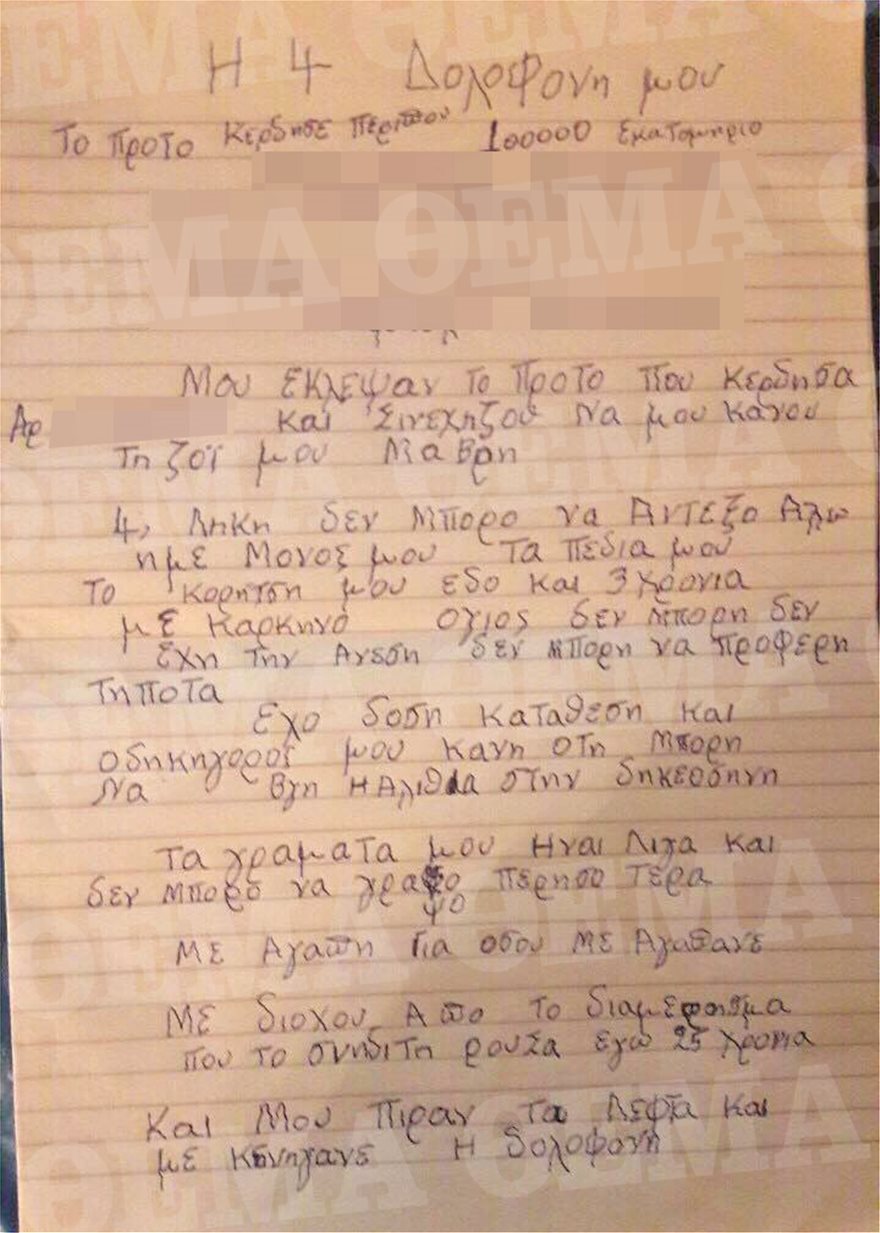 Η 4 Δολοφονη μου
Το προτο Κερδησε περιπου 100000 εκατομηριο
Μου εκλεψαν το προτο που κερδησα
Αρ και Σινεχηζου Να μου κανου
Τη ζοϊ μου Μαβρη
4, Ληκη δεν Μπορο να Αντεξο Αλω
ημε Μονος μου τα πεδια μου
Το κορητση μου εδο και 3 χρονια
με Καρκηνο ογιος δεν Μπορη δεν
εχη την Ανεση δεν μπορη να προφερη
Τηποτα
Εχο δοση καταθεση και
οδηκηγοροϊ μου κανη οτη Μπορη
Να Βγη Η Αλιθια στην δηκεοσηνη
Τα γραματα μου Ηναι Λιγα και
δεν Μπορο να γραψο περησο τερα
ψο
Με Αγαπη Για οσου Με Αγαπανε
Με διοχου Απο το διαμερησμα
που το σηνδιτη ρουσα εγω 25 χρονια
Και Μου Πιραν Τα Λεφτα και
με Κηνηγανε Η δολοφονη
ΘΕΜΑ